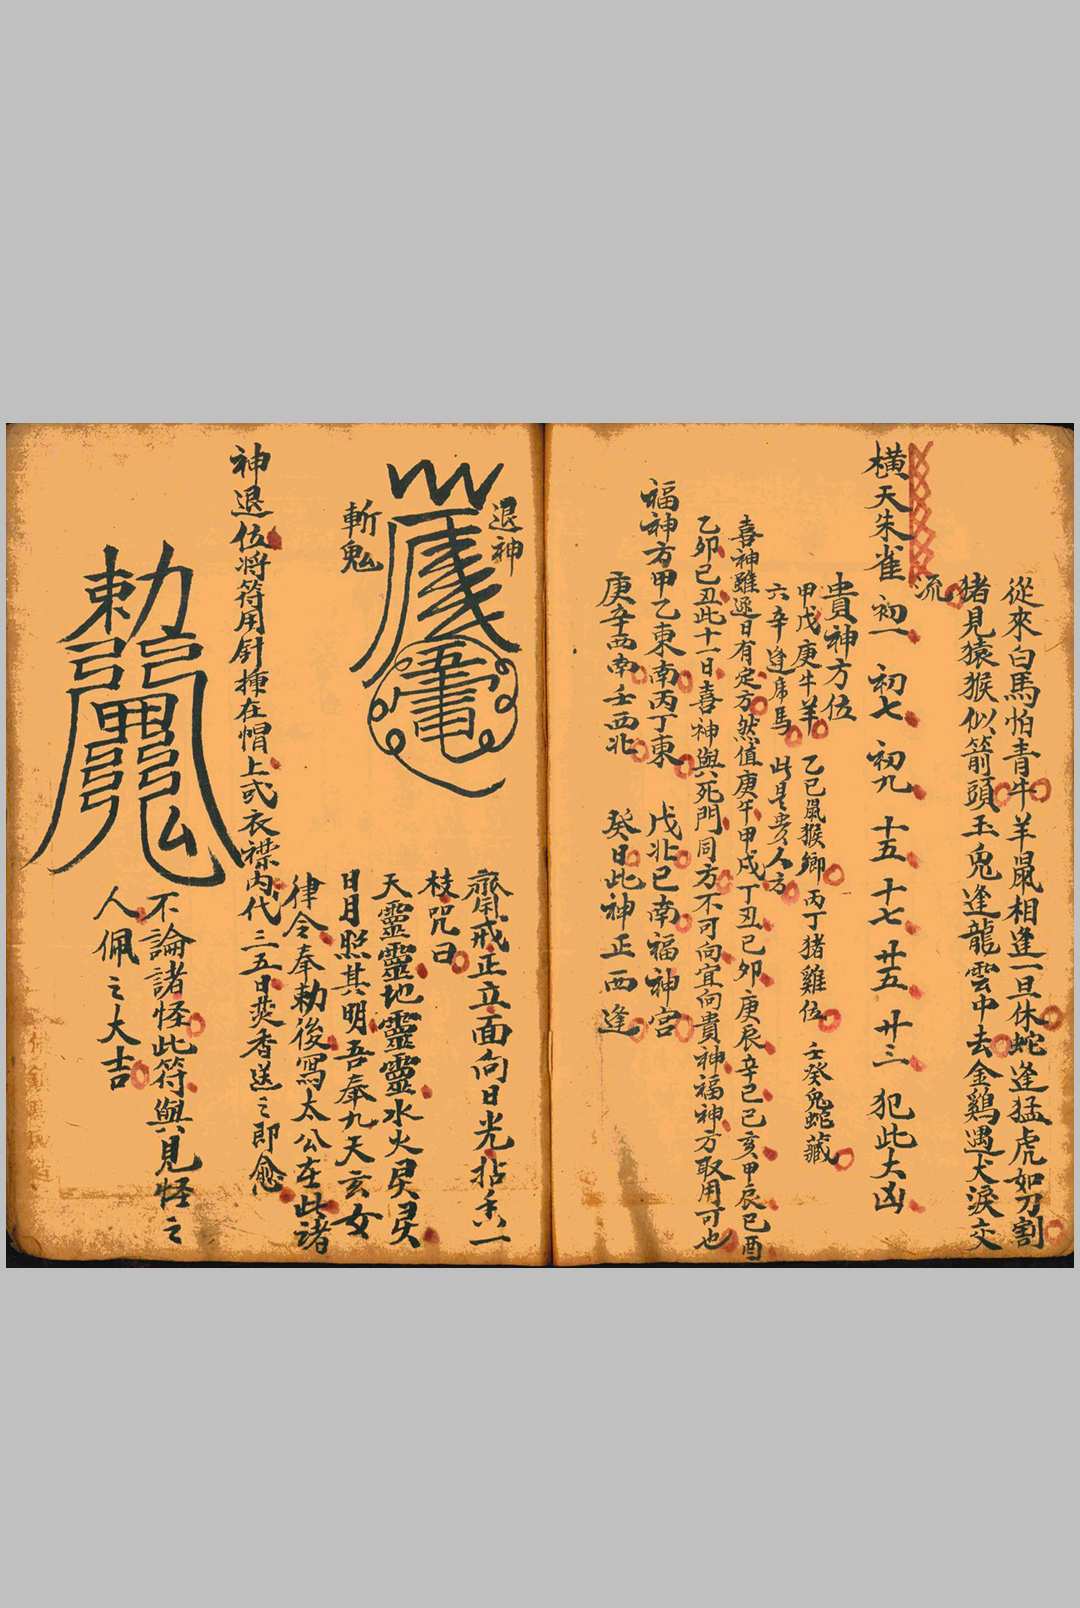 從來白馬怕青牛羊鼠相逢一旦休蛇逢猛虎如刀割
猪見猿猴似箭頭玉兔逢龍雲中去金鷄遇犬淚交
流
橫天朱雀 初一 初七 初九 十五 十七 廿五 廿三 犯此大凶
貴神方位
甲戊庚牛羊 乙己鼠猴鄉 丙丁猪雞位 壬癸兔蛇藏
六辛逢虎馬 此是貴人方
喜神雖逐日有定方然值庚午甲戌丁丑己卯庚辰辛巳己亥甲辰己酉
乙卯己丑此十一日喜神與死門同方不可向宜向貴神福神方取用可也
福神方甲乙東南丙丁東 戊北己南福神宮
庚辛西南壬西北 癸日此神正西逢
退神
斬鬼
齋戒正立面向日光拈香一
枝咒曰
天靈靈地靈靈水火灵灵
日月照其明吾奉九天玄女
律令奉勅後寫太公在此諸
神退位將符用針揷在帽上或衣襟內代三五日焚香送之即愈
勅
不論諸怪此符與見怪之
人佩之大吉